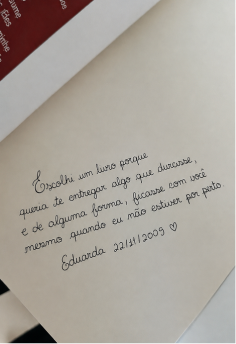 sume
Eles
minhe
Escolhi um livro porque
queria te entregar algo que durasse,
e de alguma forma, ficasse com você
mesmo quando eu não estiver por perto.
Eduarda 22/11/2009 ♡